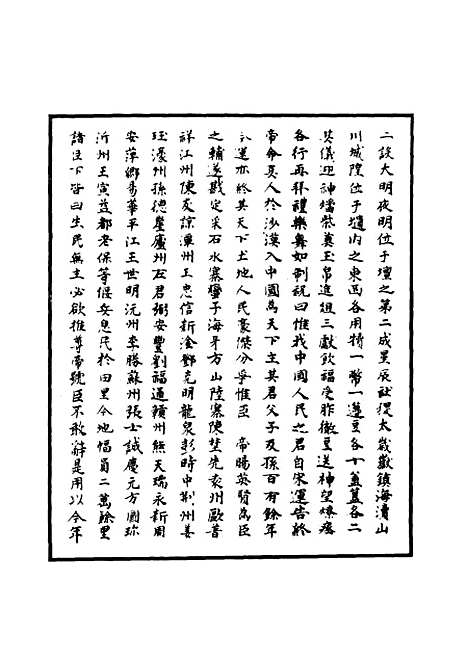 二設大明夜明位于壇之第二成星辰社稷太歲嶽鎮海瀆山
川城隍位于壝内之東西各用犢一幣一籩豆各十簠簋各二
其儀迎神燔柴奠玉帛進俎三獻飲福受胙徹豆送神望燎
各行再拜禮樂舞如制祝曰惟我中國人民之君自宋運告終
帝命真人於沙漠入中國為天下主其君父子及孫百有餘年
今運亦終其天下土地人民豪傑分爭惟臣 帝賜英賢為臣
之輔遂戡定采石水寨蠻子海牙方山陸寨陳埜先袁州歐普
祥江州陳友諒潭州王忠信新淦鄧克明龍泉彭時中荆州姜
珏濠州孫德崖廬州左君弼安豐劉福通贛州熊天瑞永新周
安萍鄉易華平江王世明沅州李勝蘇州張士誠慶元方國珍
沂州王宣益都老保等偃兵息民於田里今地幅員二萬餘里
諸臣下皆曰生民無主必欲推尊帝號臣不敢辭是用以今年